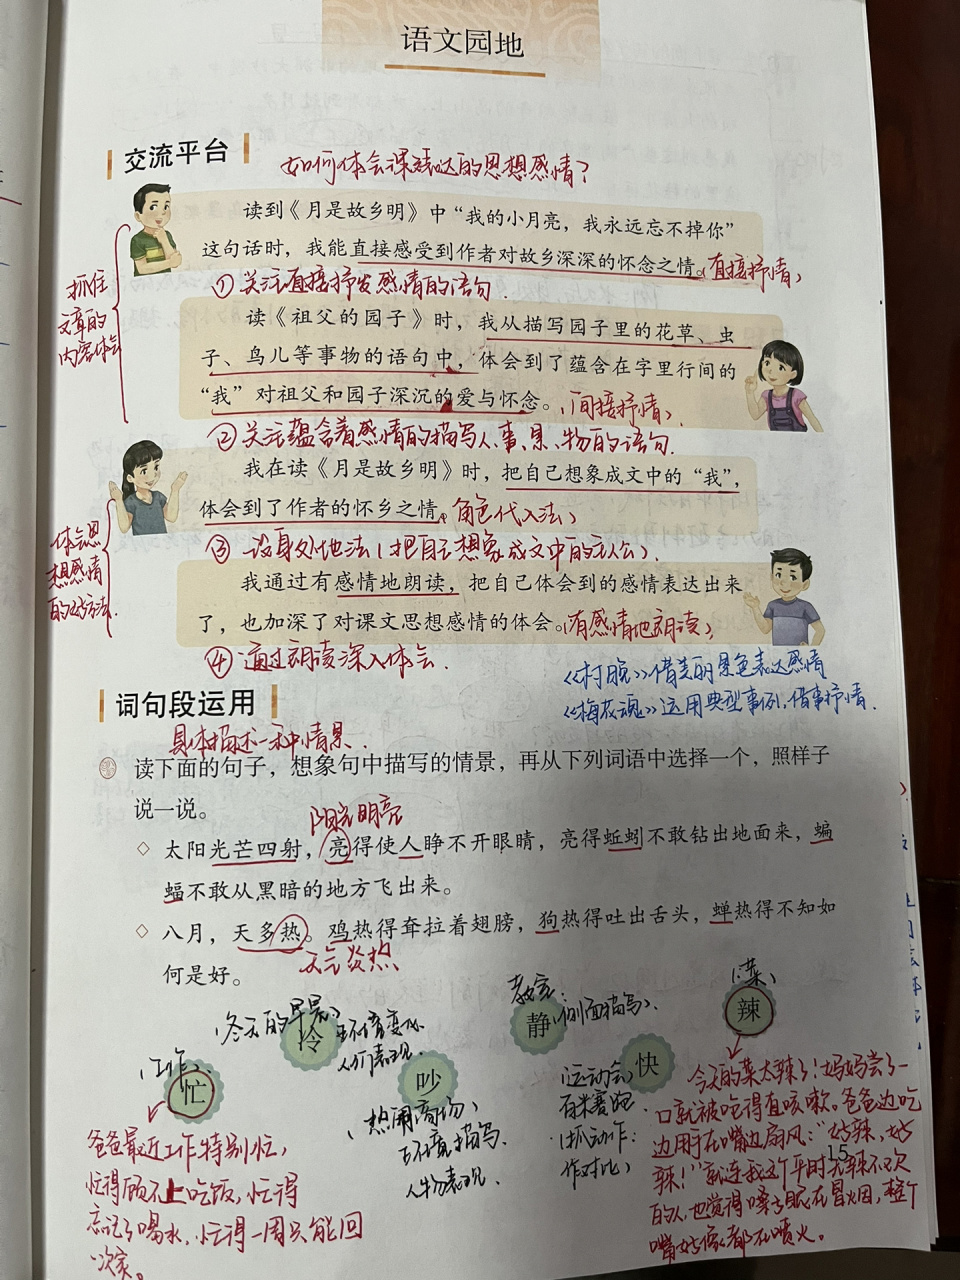 语文园地
交流平台
如何体会课文表达的思想感情？
读到《月是故乡明》中“我的小月亮，我永远忘不掉你”
这句话时，我能直接感受到作者对故乡深深的怀念之情。（直接抒情）
①关注直接抒发感情的语句.
抓住
文章的
内容体会
读《祖父的园子》时，我从描写园子里的花草、虫
子、鸟儿等事物的语句中，体会到了蕴含在字里行间的
“我”对祖父和园子深沉的爱与怀念。（间接抒情）
②关注蕴含着感情的描写人、事、景、物的语句.
我在读《月是故乡明》时，把自己想象成文中的“我”，
体会到了作者的怀乡之情。（角色代入法）
③设身处地法（把自己想象成文中的主人公）.
体会思
想感情
的好方法.
我通过有感情地朗读，把自己体会到的感情表达出来
了，也加深了对课文思想感情的体会。（有感情地朗读）
④通过朗读深入体会.
《村晚》借美丽景色表达感情
《梅花魂》运用典型事例，借事抒情.
词句段运用
具体描述一种情景.
读下面的句子，想象句中描写的情景，再从下列词语中选择一个，照样子
说一说。
阳光明亮
◇ 太阳光芒四射，亮得使人睁不开眼睛，亮得蚯蚓不敢钻出地面来，蝙
蝠不敢从黑暗的地方飞出来。
◇ 八月，天多热。鸡热得耷拉着翅膀，狗热得吐出舌头，蝉热得不知如
何是好。
天气炎热
（工作）
忙
（冬天的早晨）
冷
环境变化
人们表现.
吵
（热闹商份）
环境描写.
人物表现.
教室.
静
（侧面描写）.
快
（运动会）
百米赛跑.
（抓动作：
作对比）
（菜）
辣
爸爸最近工作特别忙，
忙得顾不上吃饭，忙得
忘记了喝水，忙得一周只能回
一次家。
今天的菜太辣了！妈妈尝了一
口就被呛得直咳嗽。爸爸边吃
边用手在嘴边扇风：“好辣，好
辣！”就连我这个平时无辣不欢
的人，也觉得嗓子眼在冒烟，整个
嘴好像都在喷火。
15